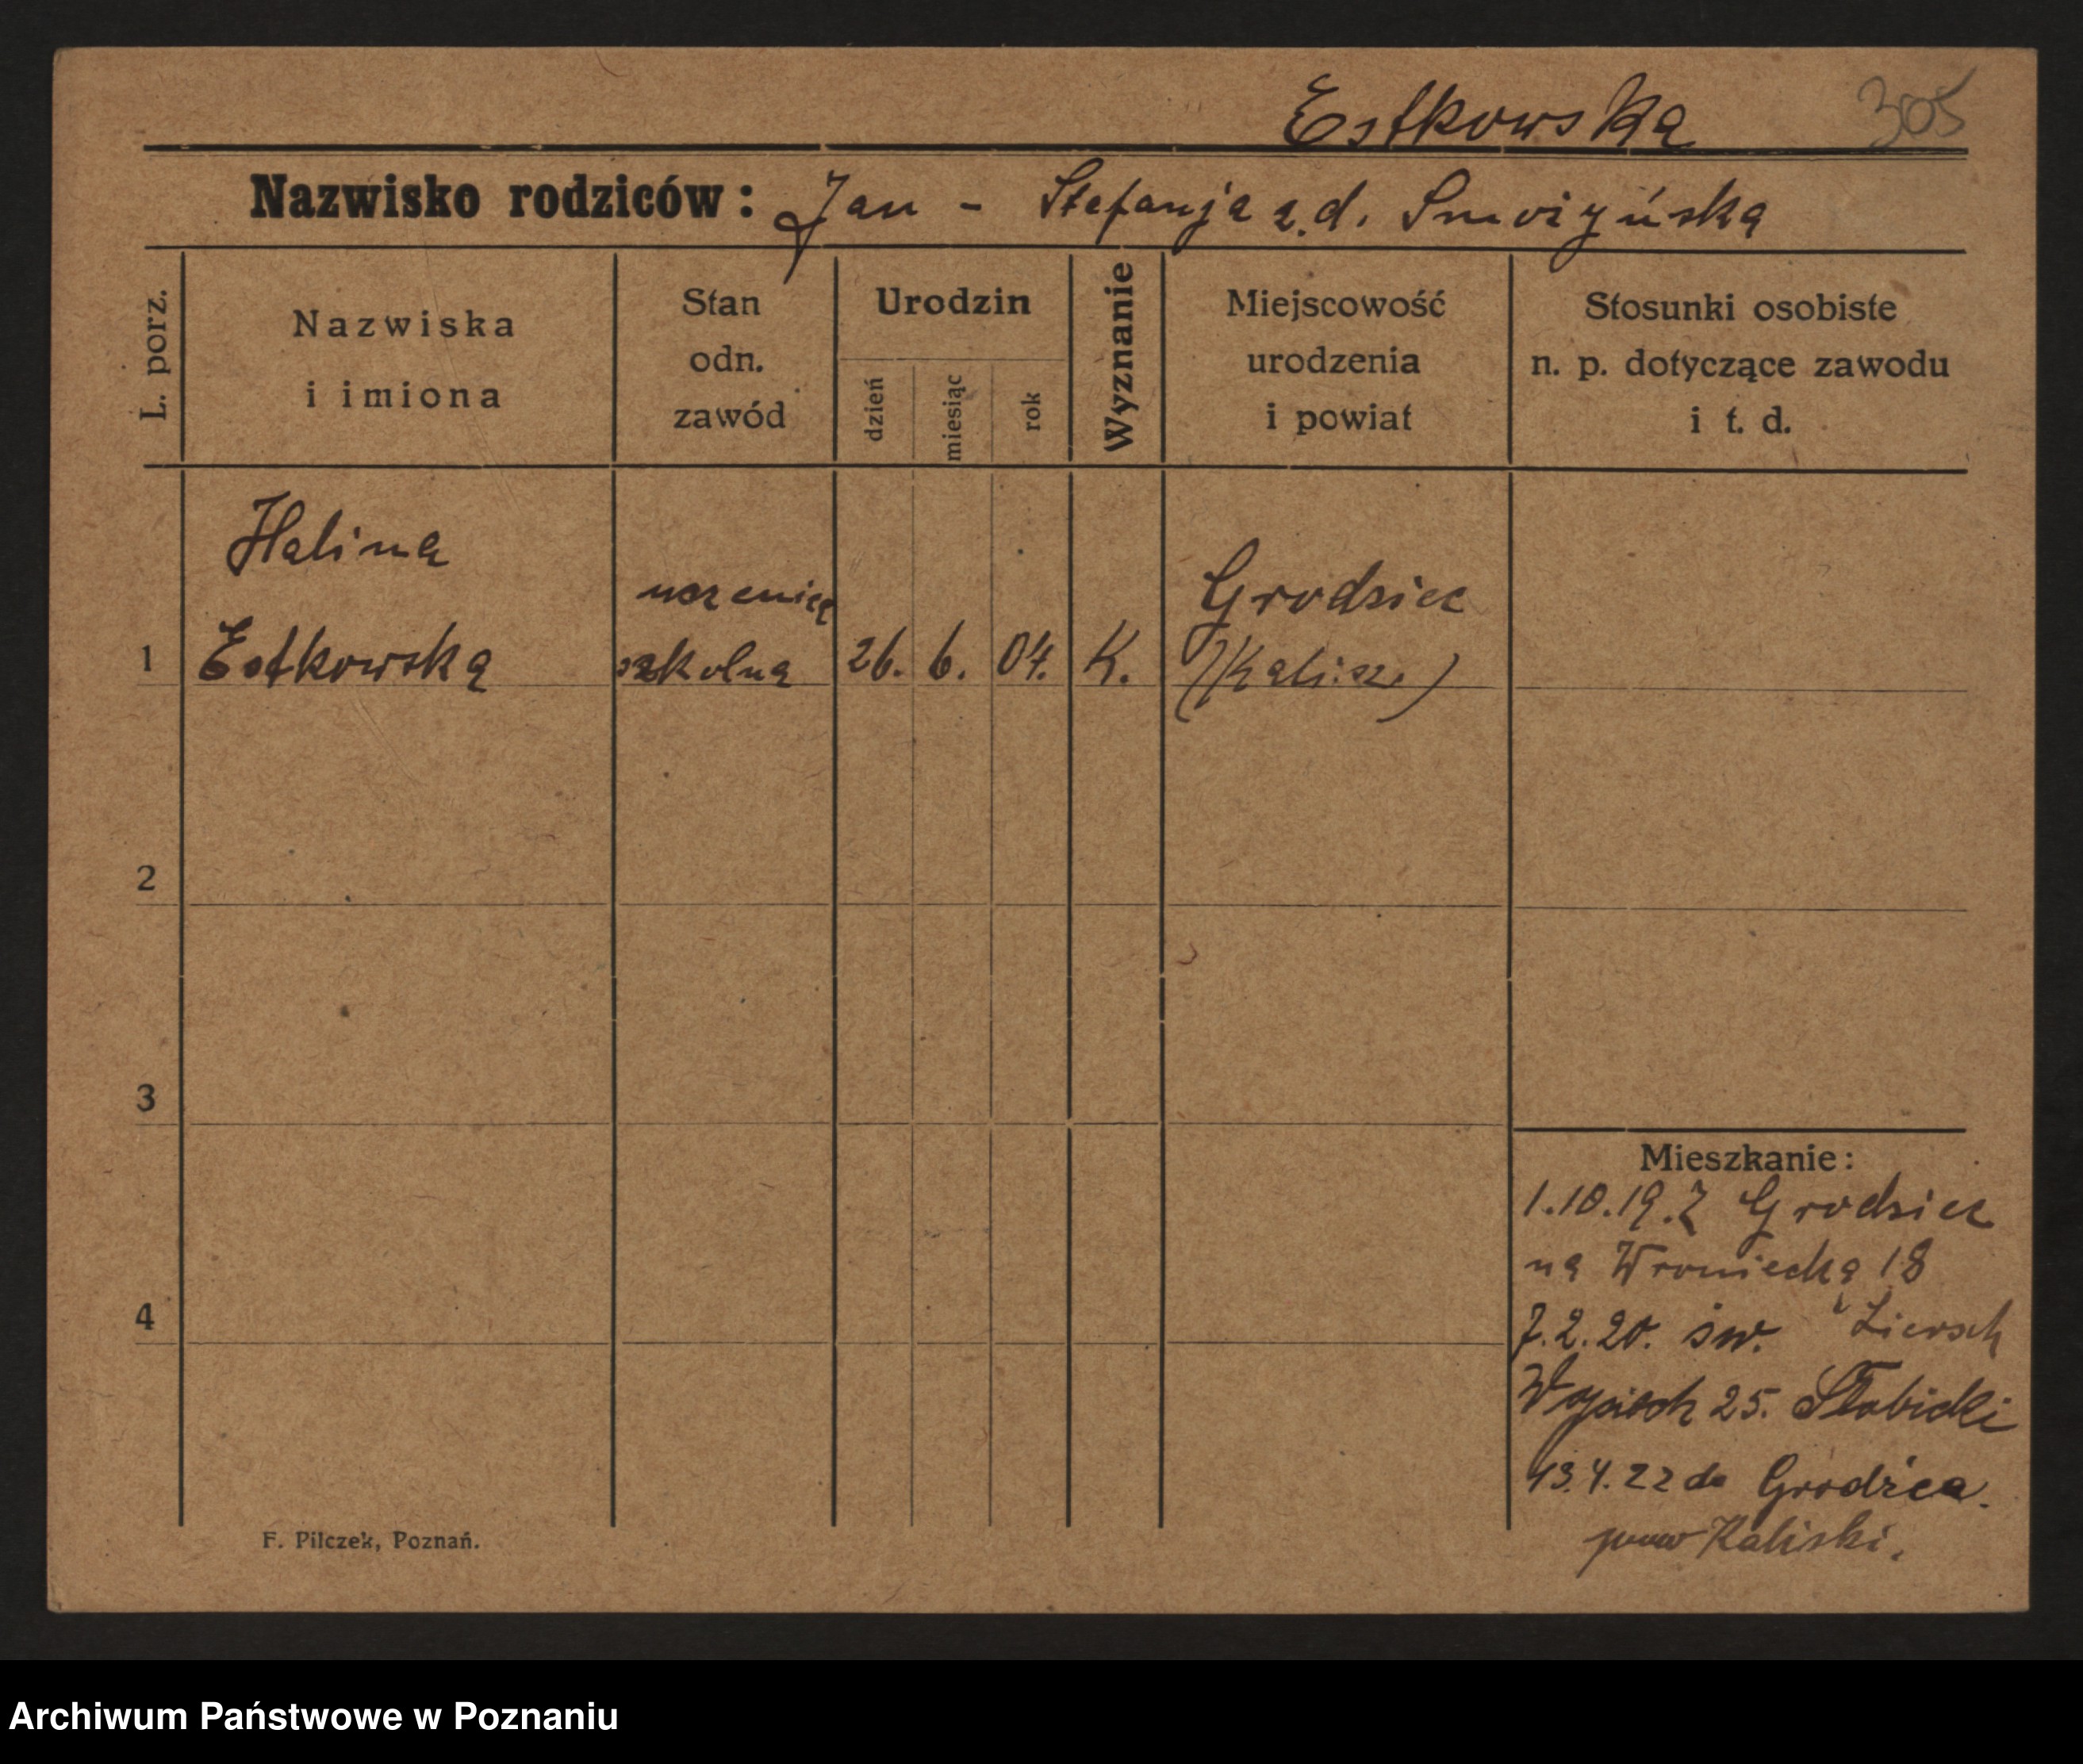 Estkowska 305
Nazwisko rodziców: Jan - Stefanja z.d. Smoiżyńska
L. porz.
Nazwiska
i imiona
Stan
odn.
zawód
Urodzin
dzień
miesiąc
rok
Wyznanie
Miejscowość
urodzenia
i powiat
Stosunki osobiste
n. p. dotyczące zawodu
i t. d.
Halina
uczenica
Grodziec
1 Estkowska szkolna 26. 6. 04. K. (Kalisz.)
2
3
4
Mieszkanie:
1.10.19. z Grodziec
na Wroniecka 18
7.2.20. św.
25.
13.4.22 do Grodźca.
pow Kaliski.
F. Pilczek, Poznań.
Archiwum Państwowe w Poznaniu